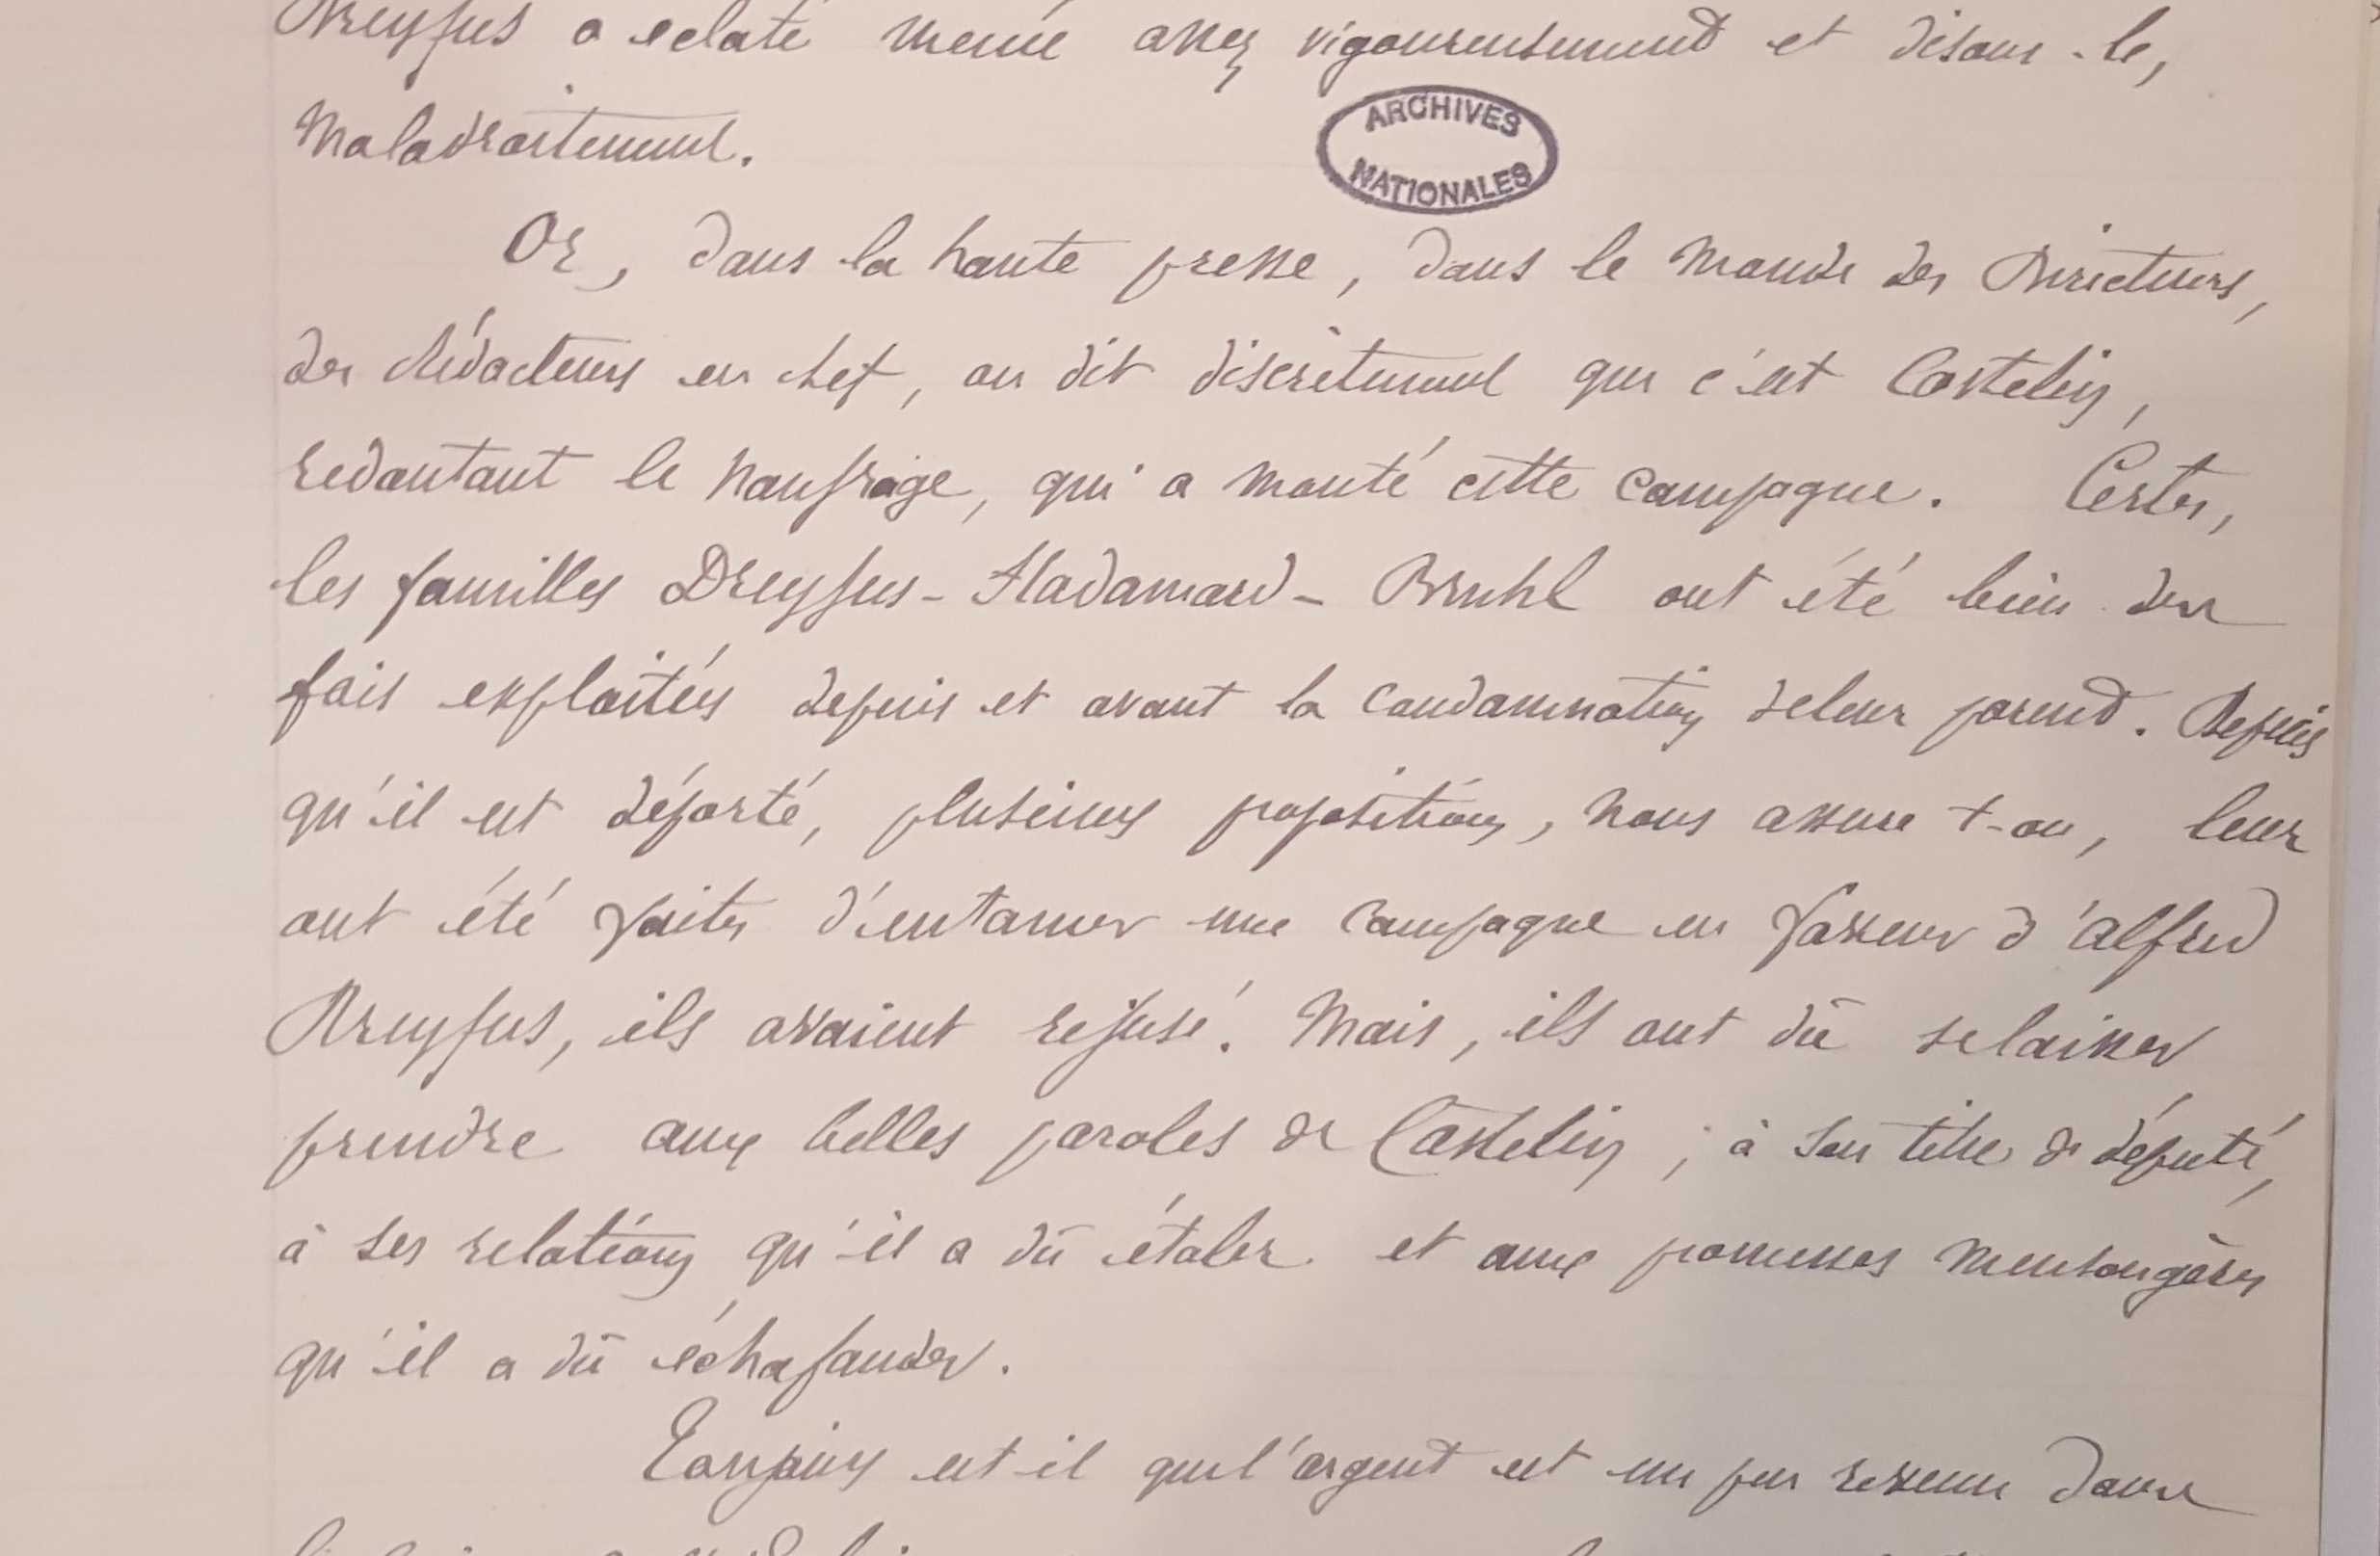 Dreyfus a éclaté même assez vigoureusement et disons-le,
Maladroitement.
ARCHIVES
NATIONALES
Or, dans la haute presse, dans le monde des Directeurs,
des Rédacteurs en chef, on dit discrètement que c'est Castelin,
redoutant le naufrage, qui a monté cette campagne. Certes,
les familles Dreyfus-Hadamard-Bruhl ont été bien des
fois exploitées depuis et avant la condamnation de leur parent. Depuis
qu'il est déporté, plusieurs propositions, nous assure t-on, leur
ont été faites d'entamer une campagne en faveur d'Alfred
Dreyfus, ils avaient refusé. Mais, ils ont dû se laisser
prendre aux belles paroles de Castelin ; à son titre de député,
à ses relations qu'il a dû étaler et aux promesses mensongères
qu'il a dû échafauder.
Toujours est-il que l'argent est un peu revenu dans